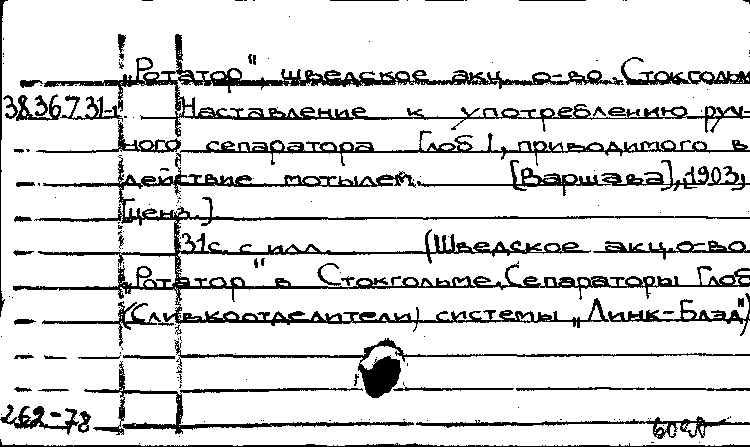 „Ротатор", шведское акц. о-во. Стокгольм
38.36731-1 Наставление к употреблению руч-
ного сепаратора Глоб 1, приводимого в
действие мотылем. [Варшава], [1903,
ценз.]
31с. с илл. (Шведское акц. о-во
„Ротатор" в Стокгольме. Сепараторы Глоб
(Сливкоотделители) системы „Линк-Блад")
262-78